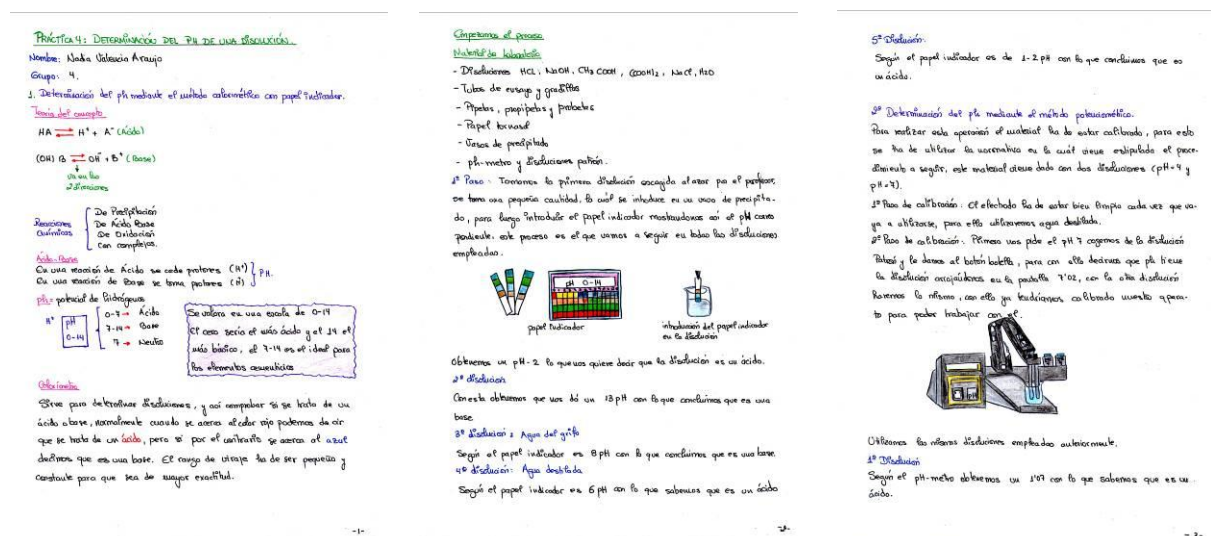 PRÁCTICA 4: DETERMINACIÓN DEL PH DE UNA DISOLUCIÓN.
Nombre: Nadia Valencia Araujo
Grupo: 4.
1. Determinación del ph mediante el método calorimétrico con papel indicador.
Teoría del concepto
HA ⇌ H⁺ + A⁻ (Ácido)
(OH) B ⇌ OH⁻ + B⁺ (Base)
va en las
2 direcciones
Reacciones
Químicas
De Precipitación
De Ácido Base
De Oxidación
Con complejos.
Ácido-Base
En una reacción de Ácido se cede protones (H⁺)
En una reacción de Base se toma protones (H⁺)
PH.
ph = potencial de hidrógenos
H⁺
pH
0-14
0-7 → Ácido
7-14 → Base
7 → Neutro
Se valora en una escala de 0-14
El cero sería el más ácido y el 14 el
más básico, el 7-14 es el ideal para
los elementos cementicios
Calorimetría
Sirve para determinar disoluciones, y así comprobar si se trata de un
ácido o base, normalmente cuando se acerca al color rojo podemos decir
que se trata de un ácido, pero si por el contrario se acerca al azul
decimos que es una base. El rango de viraje ha de ser pequeño y
constante para que sea de mayor exactitud.
-1-
Empezamos el proceso
Material de laboratorio
- Disoluciones HCL, NaOH, CH₃COOH, (COOH)₂, NaCl, H₂O
- Tubos de ensayo y gradillas
- Pipetas, propipetas y probetas
- Papel tornasol
- Vasos de precipitado
- ph-metro y disoluciones patrón.
1º Paso: Tomamos la primera disolución escogida al azar por el profesor,
se toma una pequeña cantidad, la cuál se introduce en un vaso de precipita-
do, para luego introducir el papel indicador mostrándonos así el pH corres
pondiente. este proceso es el que vamos a seguir en todas las disoluciones
empleadas.
pH 0-14
papel Indicador
introducción del papel indicador
en la disolución
Obtenemos un pH-2 lo que nos quiere decir que la disolución es un ácido.
2ª disolución
Con esta obtenemos que nos dá un 13 pH con lo que concluimos que es una
base.
3ª disolución: Agua del grifo
Según el papel indicador es 8 pH con lo que concluimos que es una base.
4ª disolución: Agua destilada
Según el papel indicador es 6 pH con lo que sabemos que es un ácido
-2-
5ª Disolución.
Según el papel indicador es de 1-2 pH con lo que concluimos que es
un ácido.
2º Determinación del ph mediante el método potenciométrico.
Para realizar esta operación el material ha de estar calibrado, para esto
se ha de utilizar la normativa en la cuál viene estipulado el proce-
dimiento a seguir, este material viene dado con dos disoluciones (pH=4 y
pH=7).
1º Paso de calibración: El electrodo ha de estar bien limpio cada vez que va-
ya a utilizarse, para ello utilizaremos agua destilada.
2º Paso de calibración: Primero nos pide el pH 7 cogemos de la disolución
Patrón y le damos al botón botella, para con ello decirnos que ph tiene
la disolución arrojándonos en la pantalla 7'02, con la otra disolución
haremos lo mismo, con ello ya tendríamos calibrado nuestro apara-
to para poder trabajar con él.
Utilizamos las mismas disoluciones empleadas anteriormente.
1ª Disolución
Según el pH-metro obtenemos un 1'07 con lo que sabemos que es un
ácido.
-3-